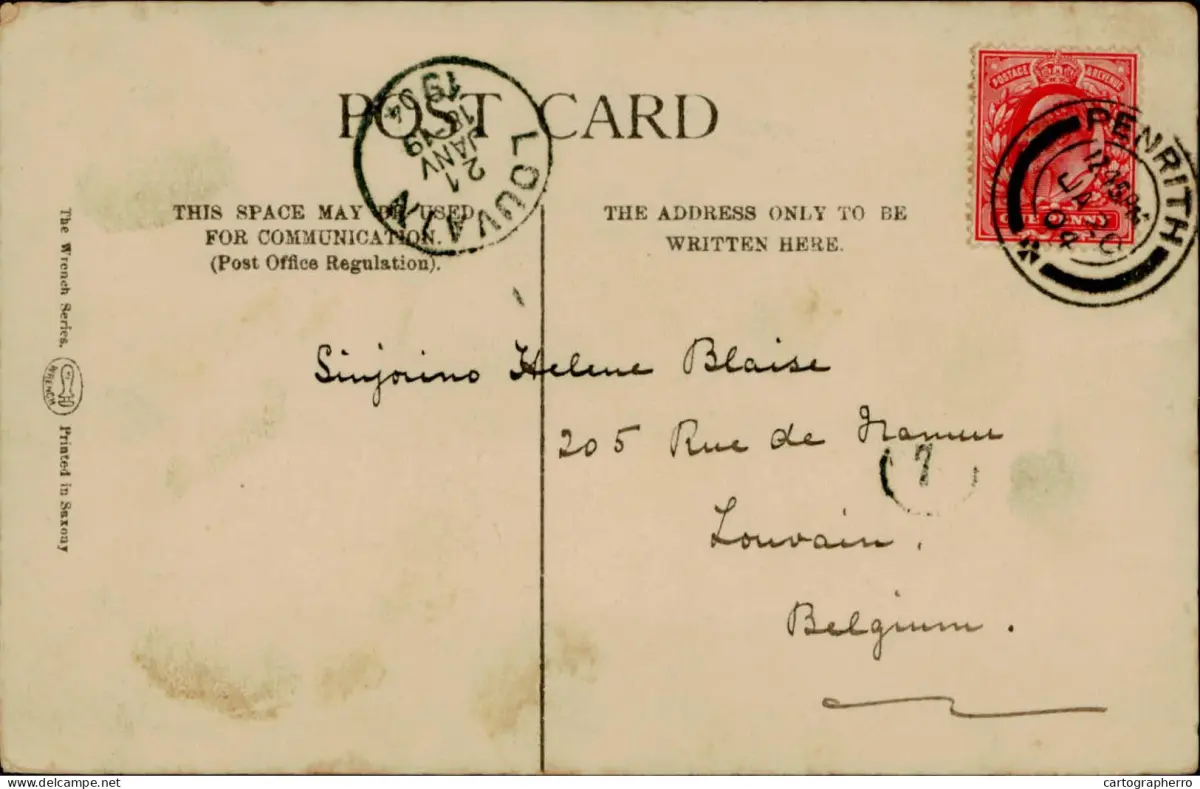 POST CARD
THIS SPACE MAY BE USED
FOR COMMUNICATION.
(Post Office Regulation).
THE ADDRESS ONLY TO BE
WRITTEN HERE.
LOUVAIN
21
JANV
1904
POSTAGE & REVENUE
ONE PENNY
PENRITH
JA 20
04
Sinjorino Helene Blaise
205 Rue de Namur
7
Louvain.
Belgium.
The Wrench Series.
WRENCH
Printed in Saxony
cartographerro